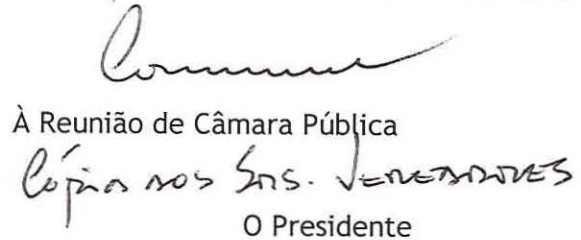 Concordo
À Reunião de Câmara Pública
Cópia aos Srs. Vereadores
O Presidente